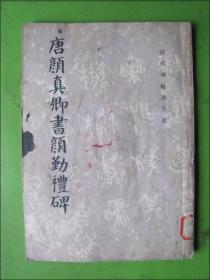 唐顏真卿書顏勤禮碑
歷代碑帖法書選